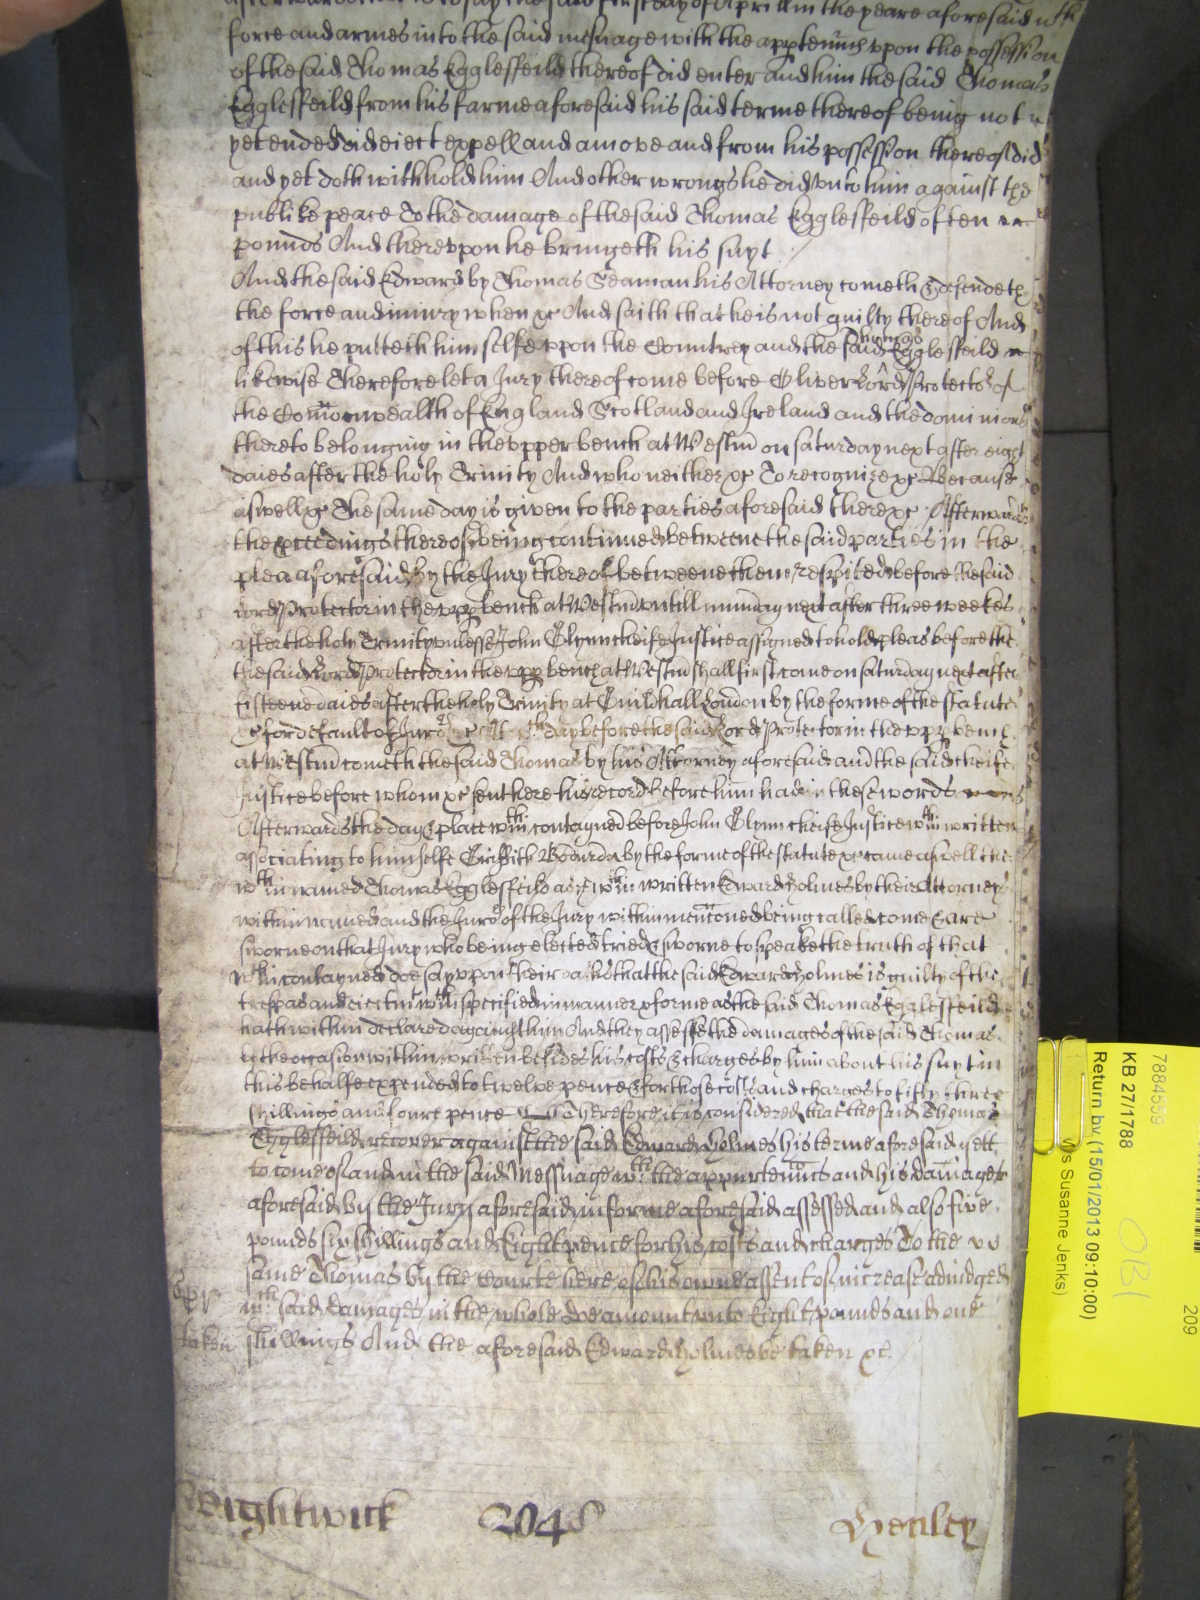 afterwards that is to say the said first day of Aprill in the yeare aforesaid wth
force and armes into the said mesuage with the apptenncs vpon the possession
of the said Thomas Egglesfeild thereof did enter and him the said Thomas
Egglesfeild from his farme aforesaid his said terme thereof being not
yet ended did eiect expell and amove and from his possession thereof did
and yet doth withhold him And other wrongs he did vnto him against the
publike peace To the damage of the said Thomas Egglesfeild of ten
pounds And therevpon he bringeth his suyt
And the said Edward by Thomas Seaman his Attorney cometh & defendeth
the force and iniury when &c And saith that he is not guilty thereof And
of this he putteth himselfe vpon the Countrey and the said Thomas Egglesfeild
likewise Therefore let a Jury thereof come before Oliver Lord Protector of
the Comonwealth of England Scotland and Ireland and the dominions
thereto belonging in the vpper bench at Westm on saturday next after eight
daies after the holy Trinity And who neither &c To recognize &c Because
aswell &c The same day is given to the parties aforesaid there &c Afterwards
the pceedings thereof being continued betweene the said parties in the
plea aforesaid by the Jury thereof betweene them respited before the said
Lord Protector in the vpp bench at Westm vntill munday next after three weekes
after the holy Trinity vnlesse John Glynn cheife Justice assigned to hold pleas before the
the said Lord Protector in the vpp bench at Westm shall first come on saturday next after
fifteene daies after the holy Trinity at Guildhall London by the forme of the statute
&c for default of Juro &c At wch day before the said Lord Protector in the vpp bench
at Westm cometh the said Thomas by his Attorney aforesaid and the said cheife
Justice before whom &c sent here his record before him had in these words
Afterwards the day & place wthin contayned before John Glynn cheife Justice wthin written
associating to himselfe Griffith Bodurda by the forme of the statute &c came aswell the
wthin named Thomas Egglesfeild as the wthin written Edward Holmes by their Attorneys
within named and the Juro of the Jury within menconed being called come & are
sworne on that Jury who being elected tried & sworne to speake the truth of that
wthin contayned doe say vpon their oaths that the said Edward Holmes is guilty of the
trespas and eiectmt wthin specified in manner & forme as the said Thomas Egglesfeild
hath within declared against him And they assesse the damages of the said Thomas
by the occasion within written besides his costs & charges by him about his suyt in
this behalfe expended to twelve pence & for those costs and charges to fifty three
shillings and foure pence Therefore it is considered that the said Thomas
Egglesfeild recover against the said Edward Holmes his terme aforesaid yett
to come of and in the said Messuage wth the appurtenncs and his damages
aforesaid by the Jury aforesaid in forme aforesaid assessed and also five
pounds six shillings and Eight pence for his costs and charges To the
same Thomas by the Courte here of his owne assent of increase adiudged
wch said damages in the whole doe amount vnto Eight pounds and one
taken shillings And the aforesaid Edward Holmes be taken &c
Wightwick 2048 Henley
7884559
KB 27/1788
Return by (15/01/2013 09:10:00)
Susanne Jenks)
209